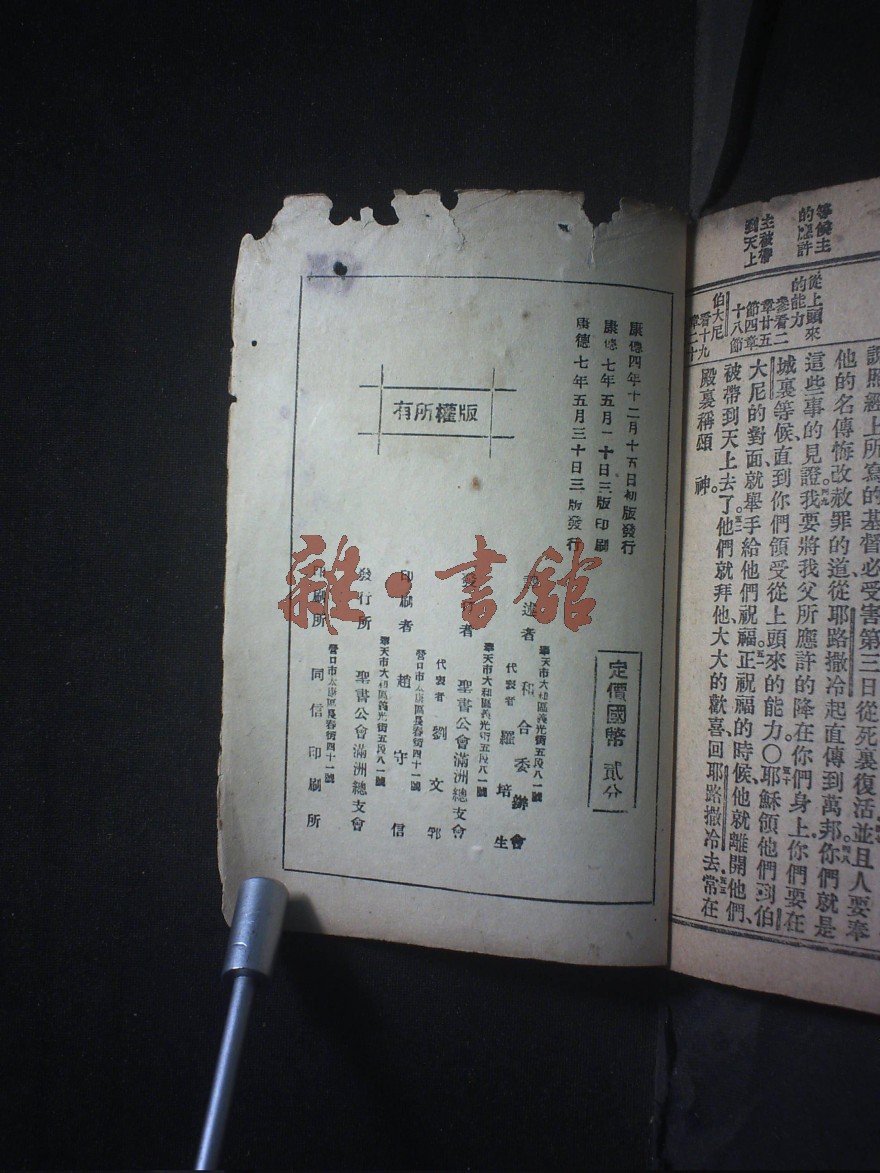 等候主
的應許
主被帶
到天上
從上頭來
的能力
參看二
章廿五
節四章
十八節
伯大尼
看十九
章二十
說照經上所寫的基督必受害第三日從死裏復活並且人要奉
他的名傳悔改赦罪的道從耶路撒冷起直傳到萬邦。你們就是
這些事的見證我要將我父所應許的降在你們身上你們要在
城裏等候、直到你們領受從上頭來的能力。〇耶穌領他們到伯
大尼的對面、就舉手給他們祝福。正祝福的時候、他就離開他們、
被帶到天上去了。他們就拜他、大大的歡喜回耶路撒冷去、常在
殿裏稱頌 神。
康德四年十二月十五日初版發行
康德七年五月一十日三版印刷
康德七年五月三十日三版發行
版權所有
定價國幣 貳分
奉天市大和區義光街五段八一號
譯述者 和合委辦會
代表者 羅培生
奉天市大和區義光街五段八一號
發行者 聖書公會滿洲總支會
代表者 劉文
營口市太康區長春街四十一號
印刷者 趙守信
奉天市大和區義光街五段八一號
發行所 聖書公會滿洲總支會
營口市太康區長春街四十一號
印刷所 同信印刷所
雜·書館